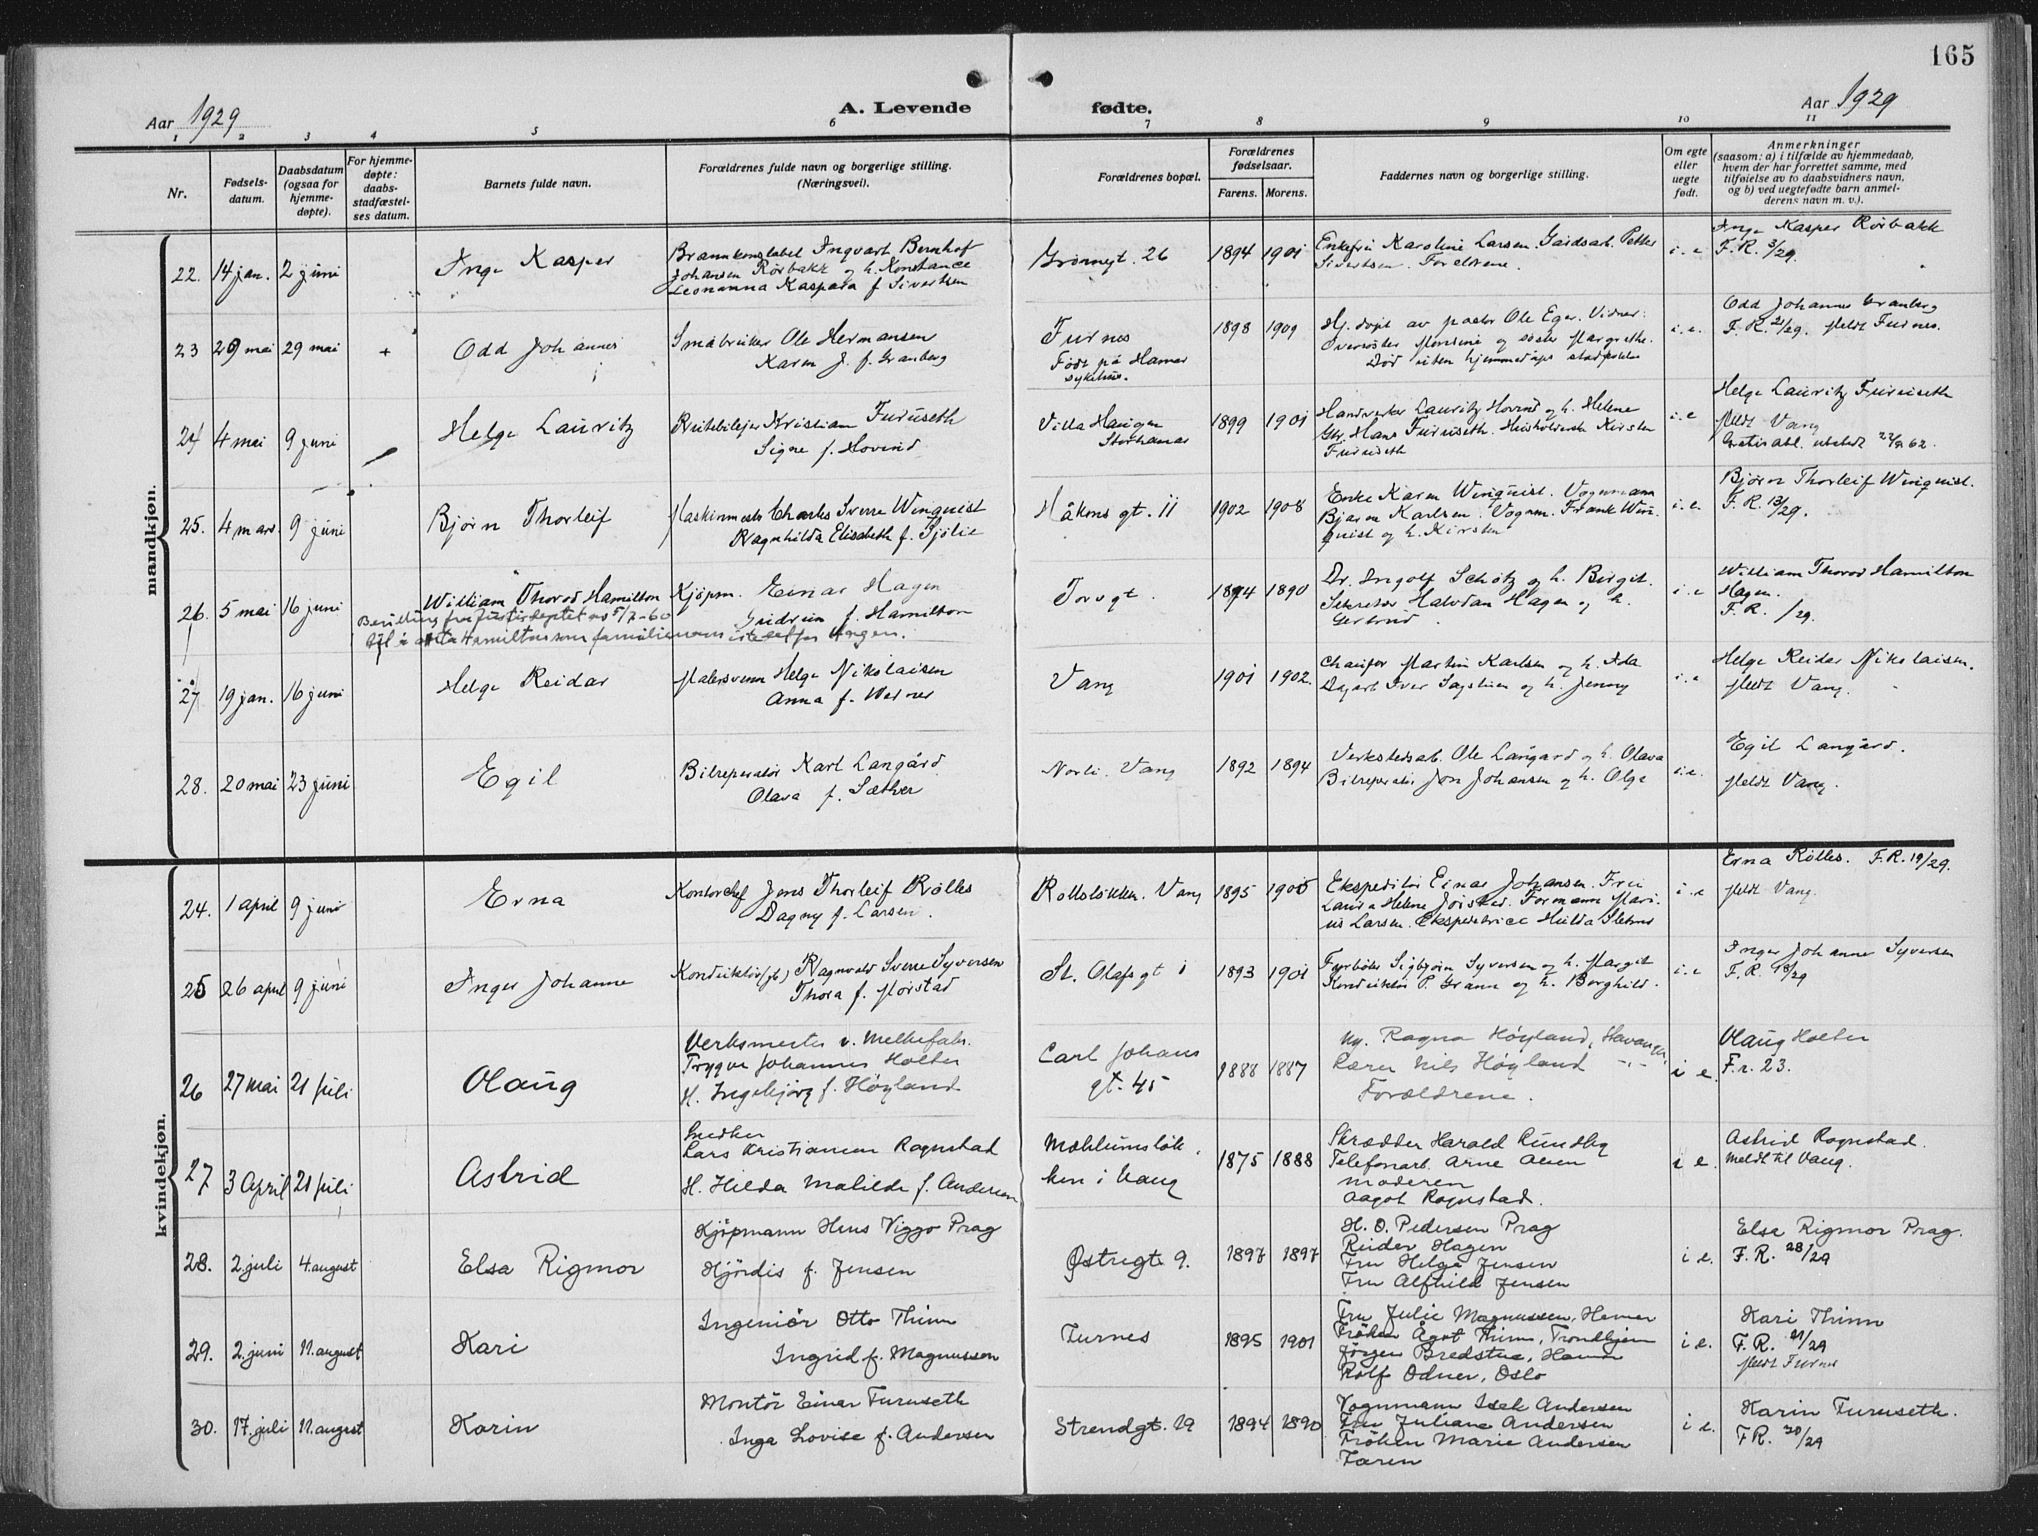 165
Aar 1929
A. Levende fødte.
Aar 1929
1 2 3 4 5 6 7 8 9 10 11
Nr.
Fødsels-
datum.
Daabsdatum
(ogsaa for
hjemme-
døpte).
For hjemme-
døpte:
daabs-
stadfæstel-
ses datum.
Barnets fulde navn.
Forældrenes fulde navn og borgerlige stilling.
(Næringsvei).
Forældrenes bopæl.
Forældrenes
fødselsaar.
Farens. Morens.
Faddernes navn og borgerlige stilling.
Om egte
eller
uegte
født.
Anmerkninger
(saasom: a) i tilfælde av hjemmedaab,
hvem der har forrettet samme, med
tilføielse av to daabsvidners navn,
og b) ved uegtefødte barn anmel-
derens navn m. v.).
mandkjøn.
22. 14 jan. 2 juni
Inge Kasper
Brannkonstabel Ingvart Bernhof
Johansen Rörbakk og h. Konstance
Leonanna Kaspara f. Sivertsen
Grönnegt. 26
1894 1901
Enkefru Karoline Larsen. Gårdsarb. Petter
Sivertsen. Foreldrene.
i. e
Inge Kasper Rörbakk
F. R. 3/29.
23 29 mai 29 mai +
Odd Johannes
Småbruker Ole Hermansen
Karen J. f. Granberg
Furnes
Född på Hamar
sykehus.
1898 1909
Hj. döpt av pastor Ole Eger. Vidner:
Oversöster Monsine og söster Margrethe.
Död uten hjemmedåps stadfestelse
i. e.
Odd Johannes Granberg
F. R. 21/29. Meldt Furnes.
24 4 mai 9 juni
Helge Lauritz
Rutebileier Kristian Furuseth
Signe f. Hovind
Villa Haugen
Storhamar
1899 1901
Handverker Lauritz Hovind og h. Helene
Gbr. Hans Furuseth. Husholderske Kirsten
Furuseth
i. e
Helge Lauritz Furuseth
Meldt Vang
Gratis att. utstedt 62.
25. 4 mars. 9 juni
Björn Thorleif
Maskinmester Charles Sverre Winquist
Ragnhilda Elisabeth f. Sjölie
Håkons gt. 11
1902 1908
Enke Karen Winquist. Vognmann
Bjarne Karlsen. Vognm. Frank Win-
quist og h. Kirsten
i. e.
Björn Thorleif Winquist.
F. R. 13/29.
26. 5 mai 16 juni
William Thorod Hamilton
Kjöpm. Einar Hagen
Gudrun f. Hamilton
Bevilling fra Justisdeptet av 5/7-60
til å anta Hamilton som familienavn istedetfor Hagen.
Torvgt.
1894 1890
Dr. Ingolf Schötz og h. Birgit.
Sekretær Halvdan Hagen og h.
Gertrud.
i. e
William Thorod Hamilton
Hagen.
F. R. /29.
27 19 jan. 16 juni
Helge Reidar
Malersvenn Helge Nikolaisen
Anna f. Werner
Vang
1901 1902.
Chaufør Martin Karlsen og h. Ida
Dagarb. Iver Sagstuen og h. Jenny
i. e
Helge Reidar Nikolaisen.
Meldt Vang.
28. 20 mai 23 juni
Egil
Bilreperatör Karl Langård
Olava f. Sæther
Norli. Vang
1892 1894
Verkstedsarb. Ole Langård og h. Olava
Bilreperatör Jon Johansen og h. Olga
i. e.
Egil Langård.
Meldt Vang.
kvindekjøn.
24. 1 april 9 juni
Erna
Kontorchef Jens Thorleif Rölles
Dagny f. Larsen.
Rollslökken. Vang
1895 1905
Ekspeditör Einar Johansen. Fru
Laura Helene Jörsted. Formann Mari-
us Larsen. Ekspeditrice Hulda
i. e
Erna Rölles. F.R. 19/29.
Meldt Vang.
25 26 april 9 juni
Inger Johanne
Konduktör (jb) Ragnvald Sverre Syversen
Thora f. Morstad
St. Olafs gt 1
1893 1901
Fyrböter Sigbjörn Syversen og h. Margit
Konduktör P. Grann og h. Borghild.
i. e
Inger Johanne Syversen
F. R. 18/29
26 27 mai 21 juli
Olaug
Verksmester v. Melkefabr.
Trygve Johannes Holter
H. Ingebjörg f. Höyland
Carl Johans
gt. 45
1888 1887
Ragna Höyland, Stavanger
Lærer Nils Höyland -"-
Foreldrene.
i e.
Olaug Holter
F.r. 23.
27 3 April 21 juli
Astrid
Snedker
Lars Kristiansen Rognstad
H. Hilda Matilde f. Andersen
Mæhlumslök-
ken i Vang
1875 1888
Skrædder Harald Rundby
Telefonarb. Arne Olsen
Moderen
Aagot Rognstad.
i e.
Astrid Rognstad.
meldt til Vang.
28. 2. juli 4. august
Elsa Rigmor
Kjöpmann Hans Viggo Prag
Hjördis f. Jensen
Østregt. 9.
1897 1897
H. O. Pedersen Prag
Reidar Hagen
Fru Helga Jensen
Fru Alfhild Jensen
i e.
Elsa Rigmor Prag.
F. R. 28/29
29. 2. juni 11. august
Kari
Ingeniör Otto Thinn
Ingrid f. Magnussen
Furnes
1895 1901
Fru Julie Magnussen, Hamar
Fröken Ågot Thinn, Trondhjem
Jörgen Bredstue, Hamar
Rolf Odner, Oslo
i e.
Kari Thinn
F. R. 21/29
Meldt Furnes
30. 17. juli 11. august
Karin
Montör Einar Furuseth
Inga Lovise f. Andersen
Strandgt. 19
1894 1890
Vognmann Isak Andersen
Fru Juliane Andersen
Fröken Marie Andersen
Faren
i e.
Karin Furuseth.
F R. 20/29